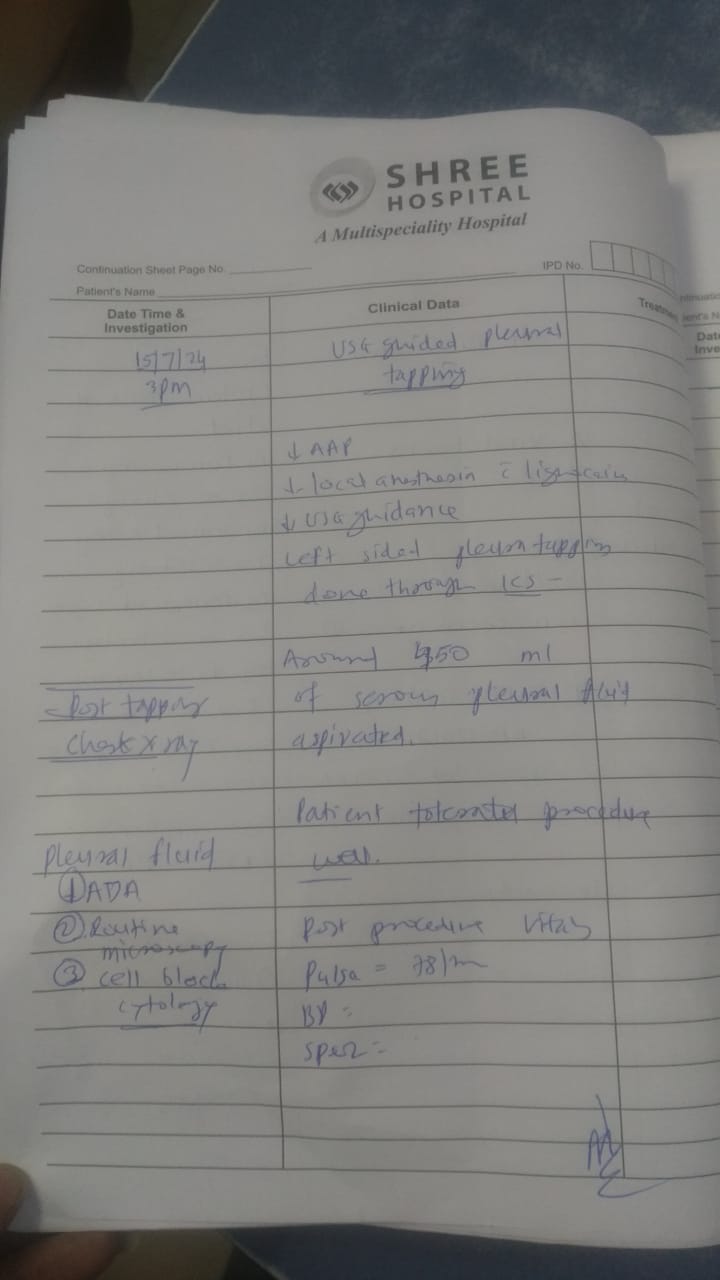 SHREE
HOSPITAL
A Multispeciality Hospital
Continuation Sheet Page No.
IPD No.
Patient's Name
Date Time &
Investigation
Clinical Data
15/7/24
3pm
USG guided pleural
tapping
↓ AAP
↓ local anesthesia c̄
↓ USG guidance
Left sided pleural tapping
done through ICS -
Around ml
of serous pleural fluid
aspirated.
Post tapping
chest x ray
Patient tolerated procedure
well.
Pleural fluid
① ADA
② Routine
microscopy
③ cell block
cytology
Post procedure vitals
Pulse = 78/m
BP =
SpO2 =